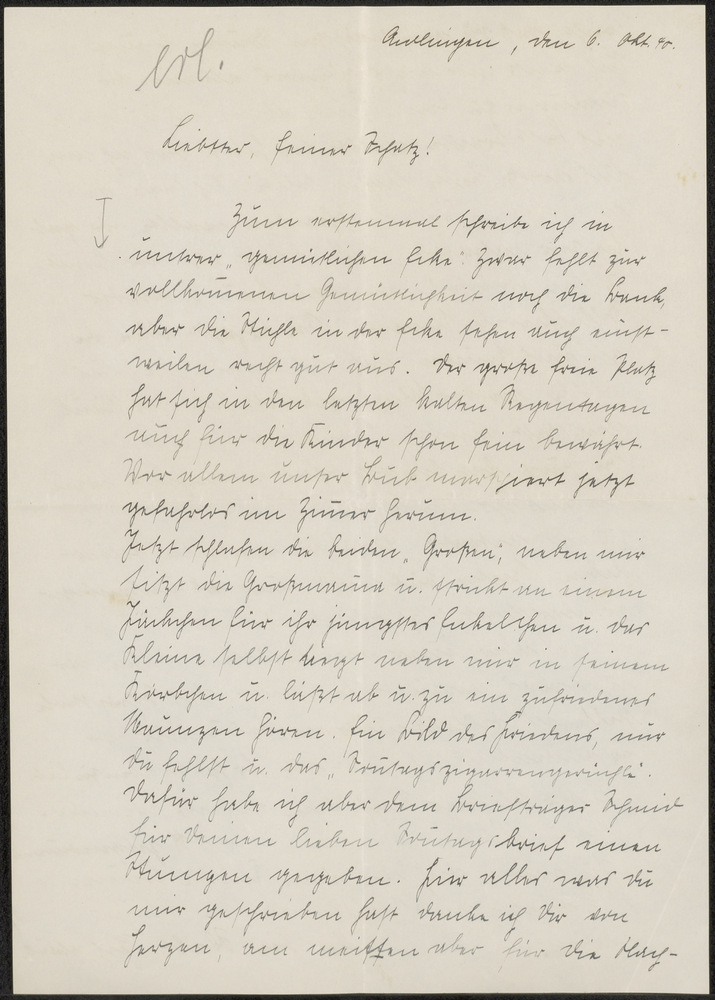 erl.
Andlingen, den 6. Okt. 40.
Liebster, feiner Schatz!
Zum erstenmal schreibe ich in
unsrer „gemütlichen Ecke". Zwar fehlt zur
vollkommenen Gemütlichkeit noch die Bank,
aber die Stühle in der Ecke sehen auch einst-
weilen recht gut aus. Der große freie Platz
hat sich in den letzten kalten Regentagen
auch für die Kinder schon fein bewährt.
Vor allem unser Bub marschiert jetzt
gefahrlos im Zimmer herum.
Jetzt schlafen die beiden „Großen", neben mir
sitzt die Großmama u. strickt an einem
Jäckchen für ihr jüngstes Enkelchen u. das
Kleine selbst liegt neben mir in seinem
Körbchen u. läßt ab u. zu ein zufriedenes
Maunzen hören. Ein Bild des Friedens, nur
Du fehlst u. das „Sonntagszigarrengerüchle".
Dafür habe ich aber dem Briefträger Schmid
für Deinen lieben Sonntagsbrief einen
Stumpen gegeben. Für alles was Du
mir geschrieben hast danke ich Dir von
Herzen, am meisten aber für die Nach-